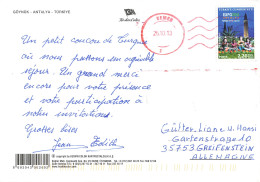 GÖYNÜK - ANTALYA - TÜRKİYE
KEMER
25.10.12
EXPO
Un petit coucou de Turquie
où nous passons un agréable
séjour. Un grand merci
encore pour votre présence
et votre participation à
notre
Grosses bises
Jean Edith
Gülter, Liane u. Hansi
Gartenstraße
35753 GREIFENSTEIN
ALLEMAGNE